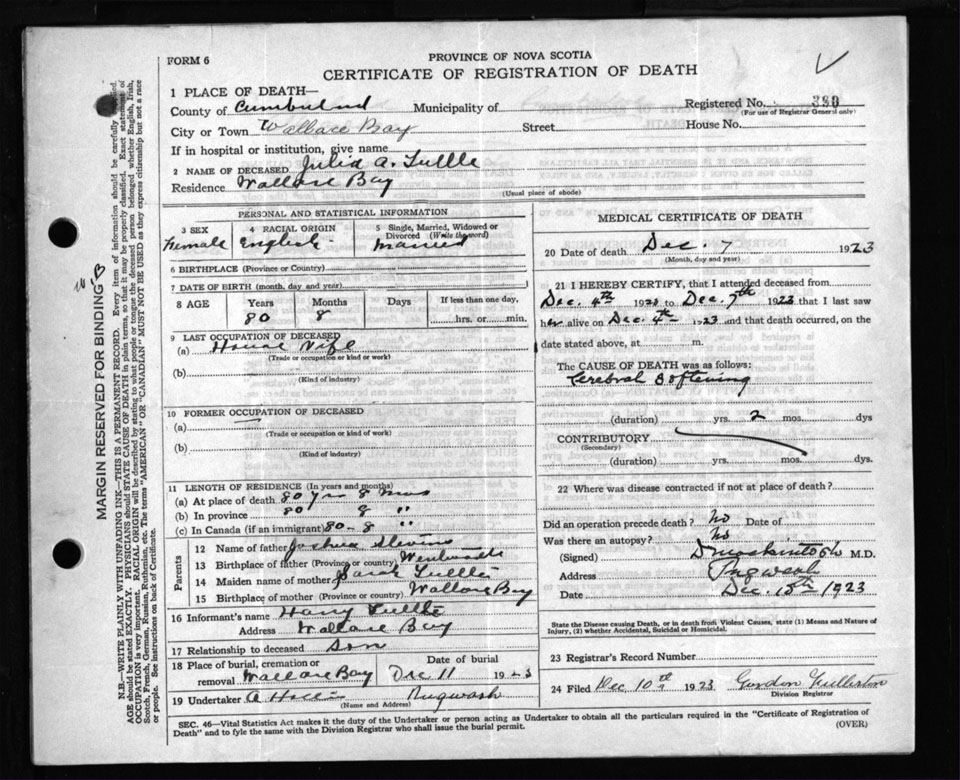 FORM 6
PROVINCE OF NOVA SCOTIA
CERTIFICATE OF REGISTRATION OF DEATH
1 PLACE OF DEATH—
County of Cumberland Municipality of Registered No. 380
(For use of Registrar General only)
City or Town Wallace Bay Street House No.
If in hospital or institution, give name
2 NAME OF DECEASED Julia A. Tuttle
Residence Wallace Bay
(Usual place of abode)
PERSONAL AND STATISTICAL INFORMATION
3 SEX 4 RACIAL ORIGIN 5 Single, Married, Widowed or Divorced (Write the word)
Female English Married
6 BIRTHPLACE (Province or Country)
7 DATE OF BIRTH (month, day and year)
8 AGE Years Months Days If less than one day.
80 8 hrs. or min.
9 LAST OCCUPATION OF DECEASED
(a) House Wife
(Trade or occupation or kind or work)
(b)
(Kind of industry)
10 FORMER OCCUPATION OF DECEASED
(a) —
(Trade or occupation or kind of work)
(b)
(Kind of industry)
11 LENGTH OF RESIDENCE (In years and months)
(a) At place of death 80 yrs 8 mos
(b) In province 80 8 "
(c) In Canada (if an immigrant) 80 - 8 "
Parents
12 Name of father Joshua Stevens
13 Birthplace of father (Province or country)
14 Maiden name of mother Sarah Tuttle
15 Birthplace of mother (Province or country) Wallace Bay
16 Informant's name Harry Tuttle
Address Wallace Bay
17 Relationship to deceased Son
18 Place of burial, cremation or removal Wallace Bay Date of burial Dec 11 1923
19 Undertaker Pugwash
(Name and Address)
MEDICAL CERTIFICATE OF DEATH
20 Date of death Dec 7 1923
(Month, day and year)
21 I HEREBY CERTIFY, that I attended deceased from
Dec. 4th 1923 to Dec. 7th 1923 that I last saw
her alive on Dec 4th 1923 and that death occurred, on the
date stated above, at m.
The CAUSE OF DEATH was as follows:
Cerebral Softening
(duration) yrs. 2 mos. dys
CONTRIBUTORY
(Secondary)
(duration) yrs. mos. dys.
22 Where was disease contracted if not at place of death?
Did an operation precede death? No Date of
Was there an autopsy? No
(Signed) D Mackintosh M.D.
Address Pugwash
Date Dec. 10th 1923
State the Disease causing Death, or in death from Violent Causes, state (1) Means and Nature of Injury, (2) whether Accidental, Suicidal or Homicidal.
23 Registrar's Record Number
24 Filed Dec 10th 1923 Gordon Fullerton
Division Registrar
SEC. 46—Vital Statistics Act makes it the duty of the Undertaker or person acting as Undertaker to obtain all the particulars required in the "Certificate of Registration of
Death" and to fyle the same with the Division Registrar who shall issue the burial permit.
(OVER)
MARGIN RESERVED FOR BINDING
N.B.—WRITE PLAINLY WITH UNFADING INK—THIS IS A PERMANENT RECORD. Every item of information should be carefully supplied.
AGE should be stated EXACTLY. PHYSICIANS should STATE CAUSE OF DEATH in plain terms, so that it may be properly classified. Exact statement of
OCCUPATION is very important. RACIAL ORIGIN will be described by stating to what people or tongue the deceased person belonged whether English, Irish,
Scotch, French, German, Russian, Ruthenian, etc. The terms "AMERICAN" or "CANADIAN" MUST NOT BE USED as they express citizenship but not a race
or people. See instructions on back of Certificate.